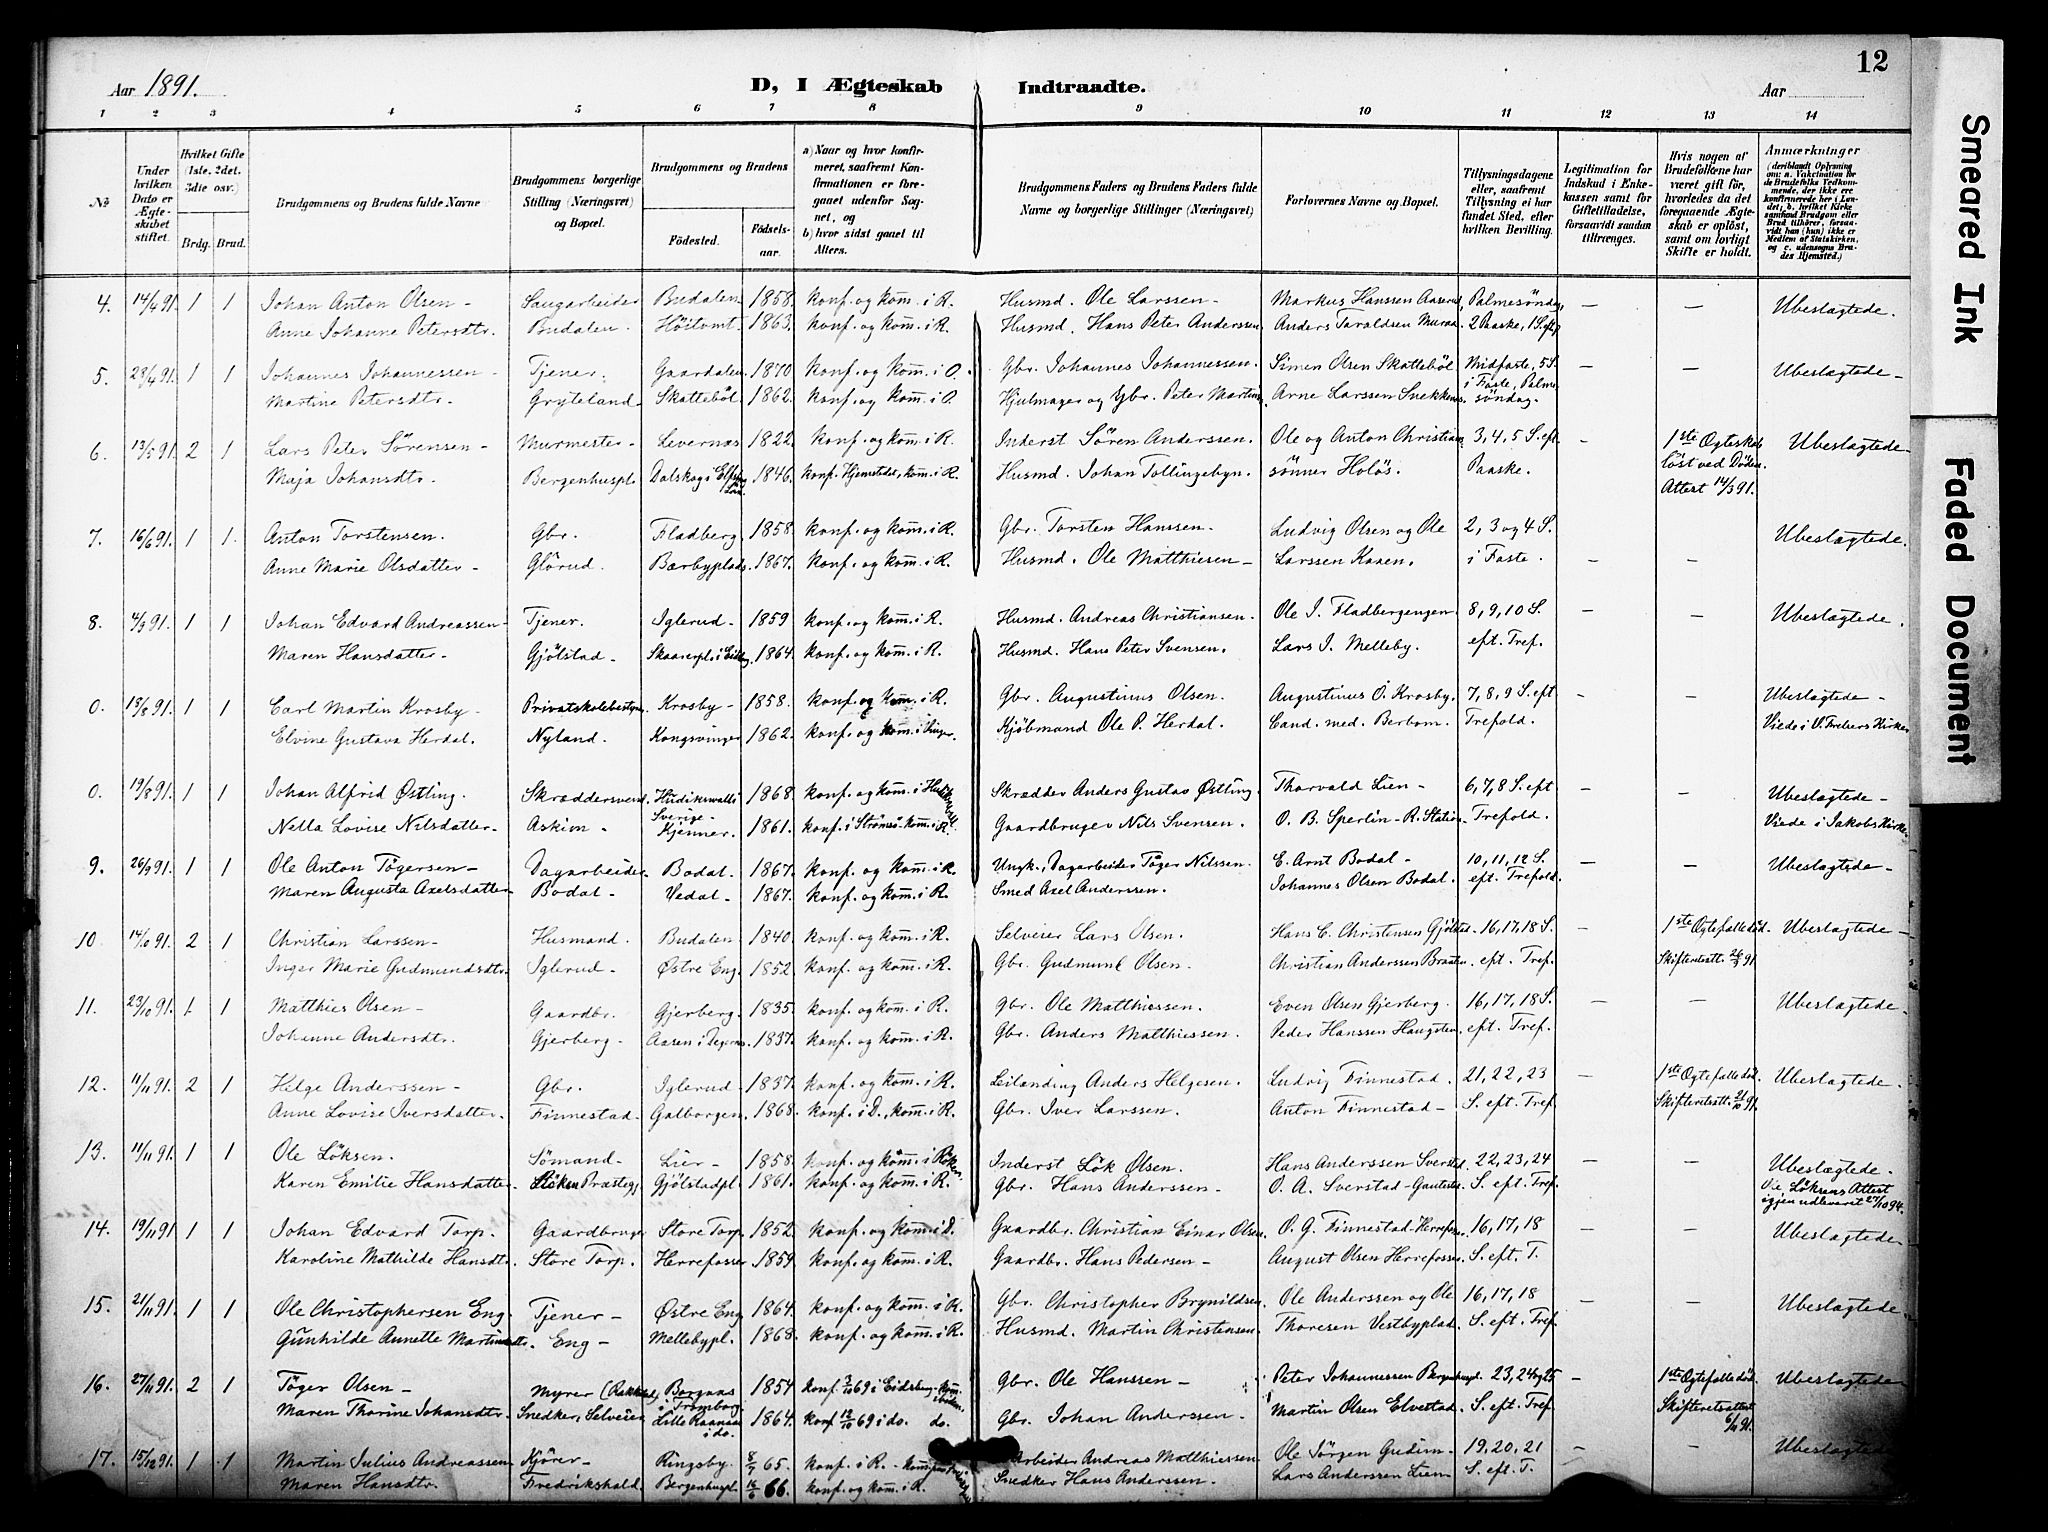 12
Aar 1891. D, I Ægteskab Indtraadte. Aar
1 2 3 4 5 6 7 8 9 10 11 12 13 14
No
Under hvilken Dato er Ægteskabet stiftet.
Hvilket Gifte (1ste, 2det, 3die osv.)
Brdg. Brud.
Brudgommens og Brudens fulde Navne
Brudgommens borgerlige Stilling (Næringsvei) og Bopæl.
Brudgommens og Brudens
Fødested. Fødselsaar.
a) Naar og hvor konfirmeret, saafremt Konfirmationen er foregaaet udenfor Sognet, og
b) hvor sidst gaaet til Alters.
Brudgommens Faders og Brudens Faders fulde Navne og borgerlige Stillinger (Næringsvei)
Forlovernes Navne og Bopæl.
Tillysningsdagene eller, saafremt Tillysning ei har fundet Sted, efter hvilken Bevilling.
Legitimation for Indskud i Enkekassen samt for Giftetilladelse, forsaavidt saadan tiltrænges.
Hvis nogen af Brudefolkene har været gift før, hvorledes da det foregaaende Ægteskab er opløst, samt om lovligt Skifte er holdt.
Anmærkninger (deriblandt Oplysning om: a. Vakcination for de Brudefolks Vedkommende, der ikke ere konfirmerede her i Landet; b. hvilket Kirkesamfund Brudgom eller Brud tilhører, forsaavidt han (hun) ikke er Medlem af Statskirken, og c. udensogns Brudes Hjemsted.)
4. 14/4 91. 1 1 Johan Anton Olsen – Saugarbeider Budalen 1858. konf. og kom̄. i R. Husmd. Ole Larssen – Markus Hanssen Aaserud, Palmesöndag, – – Ubeslægtede.
Anne Johanne Petersdtr. Budalen. Höitomt. 1863. konf. og kom̄. i R. Husmd. Hans Peter Anderssen. Anders Taraldsen Muraa. 2 Paaske, 1 S. eft.
5. 28/4 91. 1 1 Johannes Johannessen – Tjener. Gaardalen 1870 konf. og kom̄. i O. Gbr. Johannes Johannessen. Simen Olsen Skatteböl Midfaste, 5 S. – – Ubeslægtede –
Martine Petersdtr. Gryteland – Skatteböl 1862. konf. og kom̄. i O. Hjulmager og Gbr. Peter Martins. Arne Larssen Snekkenes. i Faste, Palmesöndag.
6. 13/5 91. 2 1 Lars Peter Sörensen – Murmester – Levernæs 1822. konf. og kom̄. i R. Inderst Sören Anderssen. Ole og Anton Christian 3, 4, 5 S. eft – 1ste Ægteskab Ubeslægtede –
Maja Johansdtr. Bergenhuspl. Dalskog i Elfsborg Län. 1846. konf. Hjemstdet, kom̄. i R. Husmd. Johan Tollingebyn. sönner Holös. Paaske. löst ved Döden.
Attest 14/3 91.
7. 16/6 91. 1 1. Anton Torstensen. Gbr. Fladberg 1858. konf. og kom̄. i R. Gbr. Torsten Hanssen. Ludvig Olsen og Ole 2, 3 og 4 S. Ubeslægtede.
Anne Marie Olsdatter – Glörud. Bærbyplads. 1867. konf. og kom̄. i R. Husmd. Ole Matthiesen – Larssen Kaaen. i Faste. – –
8. 4/9 91. 1 1 Johan Edvard Andreassen – Tjener. Iglerud – 1859 konf. og kom̄. i R. Husmd. Andreas Christiansen. Ole I. Fladbergengen. 8, 9, 10 S. – – Ubeslægtede.
Maren Hansdatter – Gjölstad. Skaarerpl. i Eidsb. 1864. konf. og kom̄. i R. Husmd. Hans Peter Svensen. Lars I. Melleby. eft. Tref.
0. 13/8 91. 1 1 Carl Martin Krosby – Privatskolebestyr. Krosby – 1858. konf. og kom̄. i R. Gbr. Augustinus Olsen. Augustinus O. Krosby. 7, 8, 9 S. eft – – Ubeslægtede –
Elvine Gustava Herdal. Nyland. Kongsvinger 1862. konf. og kom̄. i Vinger. Kjöbmand Ole P. Herdal. Cand. med. Berbom. Trefold. Viede i V. Frebers Kirke
0. 19/8 91. 1 1 Johan Alfrid Østling. Skræddersvend. Hudikswalls Sverige – 1868. konf. og kom̄. i Skrædder Anders Gustav Østling. Thorvald Lien – 6, 7, 8 S. eft – – Ubeslægtede –
Nella Lovise Nilsdatter – Askim – Kjenner. 1861. konf. i Strömsö – kom̄. i R. Gaardbruger Nils Svensen. O. B. Sperlin – R. Station. Trefold. Viede i Jakobs Kirke
9. 26/9 91. 1 1 Ole Anton Tögersen – Dagarbeider. Bodal. 1867. konf. og kom̄. i R. Ungk., Dagarbeider Töger Nilssen. E. Arnt Bodal – 10, 11, 12 S. – – Ubeslægtede –
Maren Augusta Axelsdatter – Bodal – Vedal – 1867. konf. og kom̄. i R. Smed Axel Anderssen. Johannes Olsen Bodal. eft. Trefold.
10. 14/10 91. 2 1 Christian Larssen – Husmand. Budalen 1840. konf. og kom̄. i R. Selveier Lars Olsen. Hans C. Christensen Gjölstad. 16, 17, 18 S. 1ste Ægtefælle död. Ubeslægtede –
Inger Marie Gudmundsdtr. Iglerud – Østre Eng. 1852. konf. og kom̄. i R. Gbr. Gudmund Olsen. Christian Anderssen Braaten. eft. Tref. Skifteretsatt. 26/9 91.
11. 23/10 91. 1 1 Matthies Olsen – Gaardbr. Gjerberg. 1835. konf. og kom̄. i R. Gbr. Ole Matthiessen. Even Olsen Gjerberg. 16, 17, 18 S. – – Ubeslægtede –
Johanne Andersdtr. Gjerberg – Aasen i Degernes. 1837. konf. og kom̄. i R. Gbr. Anders Matthiessen. Peder Hanssen Haugsten. eft. Tref.
12. 11/11 91. 2 1 Helge Anderssen – Gbr. Iglerud – 1837. konf. og kom̄. i R. Leilænding Anders Helgesen. Ludvig Finnestad. 21, 22, 23 – 1ste Ægtefælle död. Ubeslægtede.
Anne Lovise Iversdatter. Finnestad. Galborgen. 1868. konf. i D., kom̄. i R. Gbr. Iver Larssen. Anton Finnestad – S. eft. Tref. Skifteretsatt. 21/10 91.
13. 11/11 91. 1 1 Ole Löksen. Sömand – Lier – 1858. konf. og kom̄. i Röken. Inderst Lök Olsen. Hans Anderssen Sverstad. 22, 23, 24 – – Ubeslægtede.
Karen Emilie Hansdatter. Röken Præstegj. Gjölstadpl. 1861. konf. og kom̄. i R. Gbr. Hans Anderssen – O. A. Sverstad – Gautestad. S. eft. Tref. Vie Löksens Attest
igjen udleveret 27/10 94.
14. 19/11 91. 1 1 Johan Edvard Torp. Gaardbruger Store Torp. 1852. konf. og kom̄. i D. Gaardbr. Christian Einar Olsen. O. G. Finnestad – Herrefossen 16, 17, 18 – – Ubeslægtede –
Karoline Mathilde Hansdtr. Store Torp. Herrefossen 1859. konf. og kom̄. i R. Gaardbr. Hans Pedersen – August Olsen Herrefossen. S. eft. T.
15. 21/11 91. 1 1 Ole Christophersen Eng. Tjener – Østre Eng 1864. konf. og kom̄. i R. Gbr. Christopher Brynildsen. Ole Anderssen og Ole 16, 17, 18 – – Ubeslægtede.
Gunhilde Annette Martinsdtr. Eng – Mellebypl. 1868. konf. og kom̄. i R. Husmd. Martin Christensen. Thoresen Vestbyplad. S. eft. Tref.
16. 27/11 91. 2 1 Töger Olsen – Myrer (Rakkestad) Borgaas i Trömborg 1854 konf. 3/10 69 i Eidsberg – kom̄. Gbr. Ole Hanssen – Peter Johannessen Bergenhuspl. 23, 24 og 25 – 1ste Ægtefælle död. Ubeslægtede
Maren Thorine Johansdtr. Snedker, Selveier Lille Raanaas i do. 1864. konf 12/10 69 i do. do. Gbr. Johan Anderssen. Martin Olsen Elvestad. S. eft. Tref. Skifteretsattest
6/11 91.
17. 15/12 91. 1 1 Martin Julius Andreassen. Kjörer – Ringsby. 8/7 65. konf. i R. – Arbeider Andreas Matthiessen. Ole Jörgen Gudim – 19, 20, 21 – – Ubeslægtede
Maren Hansdtr. Fredrikshald. Bergenhuspl. 16/6 66. konf. og kom̄. i R. Snedker Hans Anderssen. Lars Anderssen Liem – S. eft. T.
Smeared Ink
Faded Document